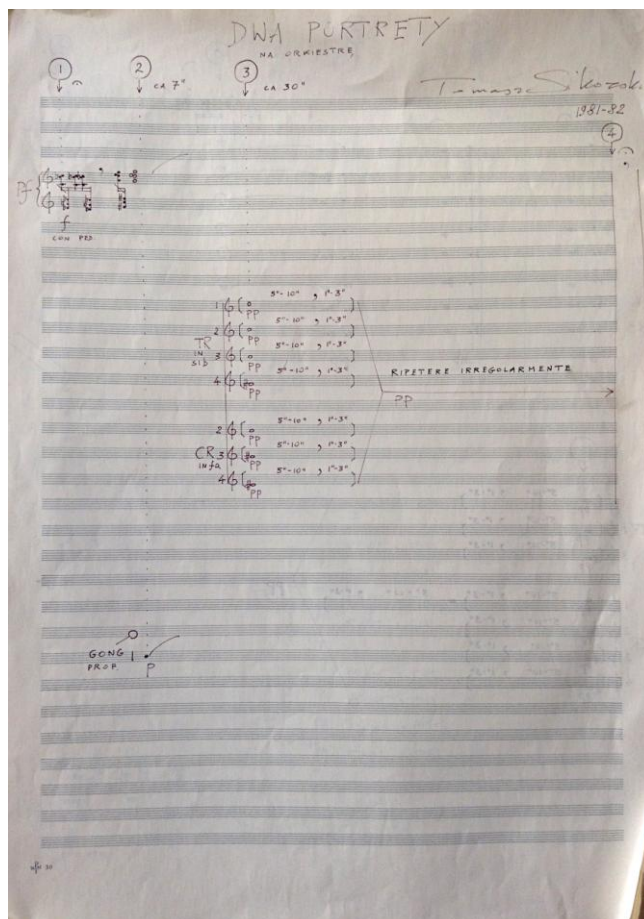 DWA PORTRETY
NA ORKIESTRĘ
1 2 CA 7" 3 CA 30"
Tomasz Sikorski
1981-82
4
Pf
f
CON PED.
1 5"-10" , 1"-3"
PP
2 5"-10" , 1"-3"
PP
TR IN SIb
3 5"-10" , 1"-3"
PP
4 5"-10" , 1"-3"
PP
RIPETERE IRREGOLARMENTE
PP
2 5"-10" , 1"-3"
PP
CR in fa
3 5"-10" , 1"-3"
PP
4 5"-10" , 1"-3"
PP
GONG
PROP.
P